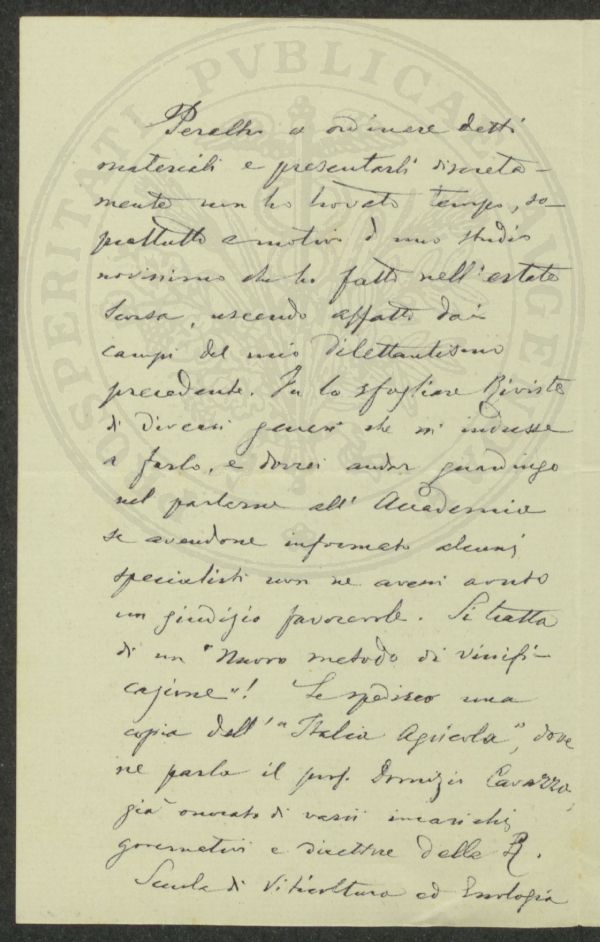 Peraltro a ordinare detti
materiali e presentarli discreta-
mente non ho trovato tempo, so-
prattutto a motivo d'uno studio
novissimo che ho fatto nell'estate
scorsa, uscendo affatto dai
campi del mio dilettantismo
precedente. Fu lo sfogliare Riviste
di diversi generi che mi indusse
a farlo, e dovrei andar guardingo
nel parlarne all'Accademia
se avendone informato alcuni
specialisti non ne avessi avuto
un giudizio favorevole. Si tratta
di un "Nuovo metodo di vinifi-
cazione"! Le spedisco una
copia dell'"Italia Agricola", dove
ne parla il prof. Domizio Cavazza,
già onorato di varii incarichi
governativi e direttore della R.
Scuola di Viticoltura ed Enologia